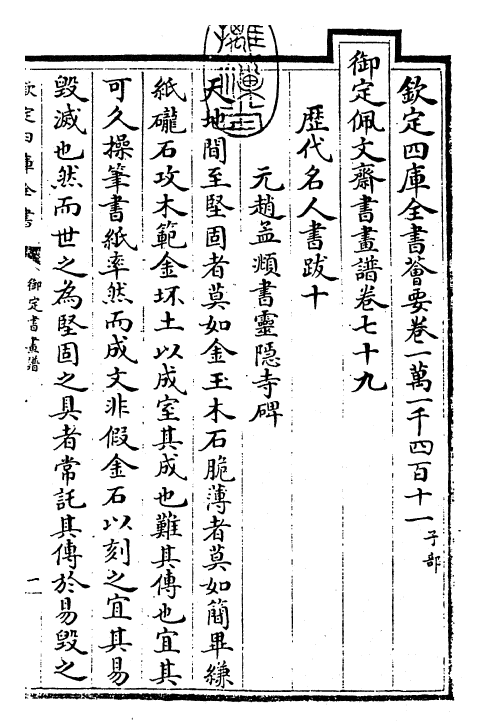 欽定四庫全書薈要卷一萬一千四百十一 子部
御定佩文齋書畫譜卷七十九
歷代名人書跋十
元趙孟頫書靈隱寺碑
天地間至堅固者莫如金玉木石脆薄者莫如簡畢縑
紙礲石攻木範金坏土以成室其成也難其傳也宜其
可久操筆書紙率然而成文非假金石以刻之宜其易
毀滅也然而世之為堅固之具者常託其傳於易毀之
欽定四庫全書
御定書畫譜
一